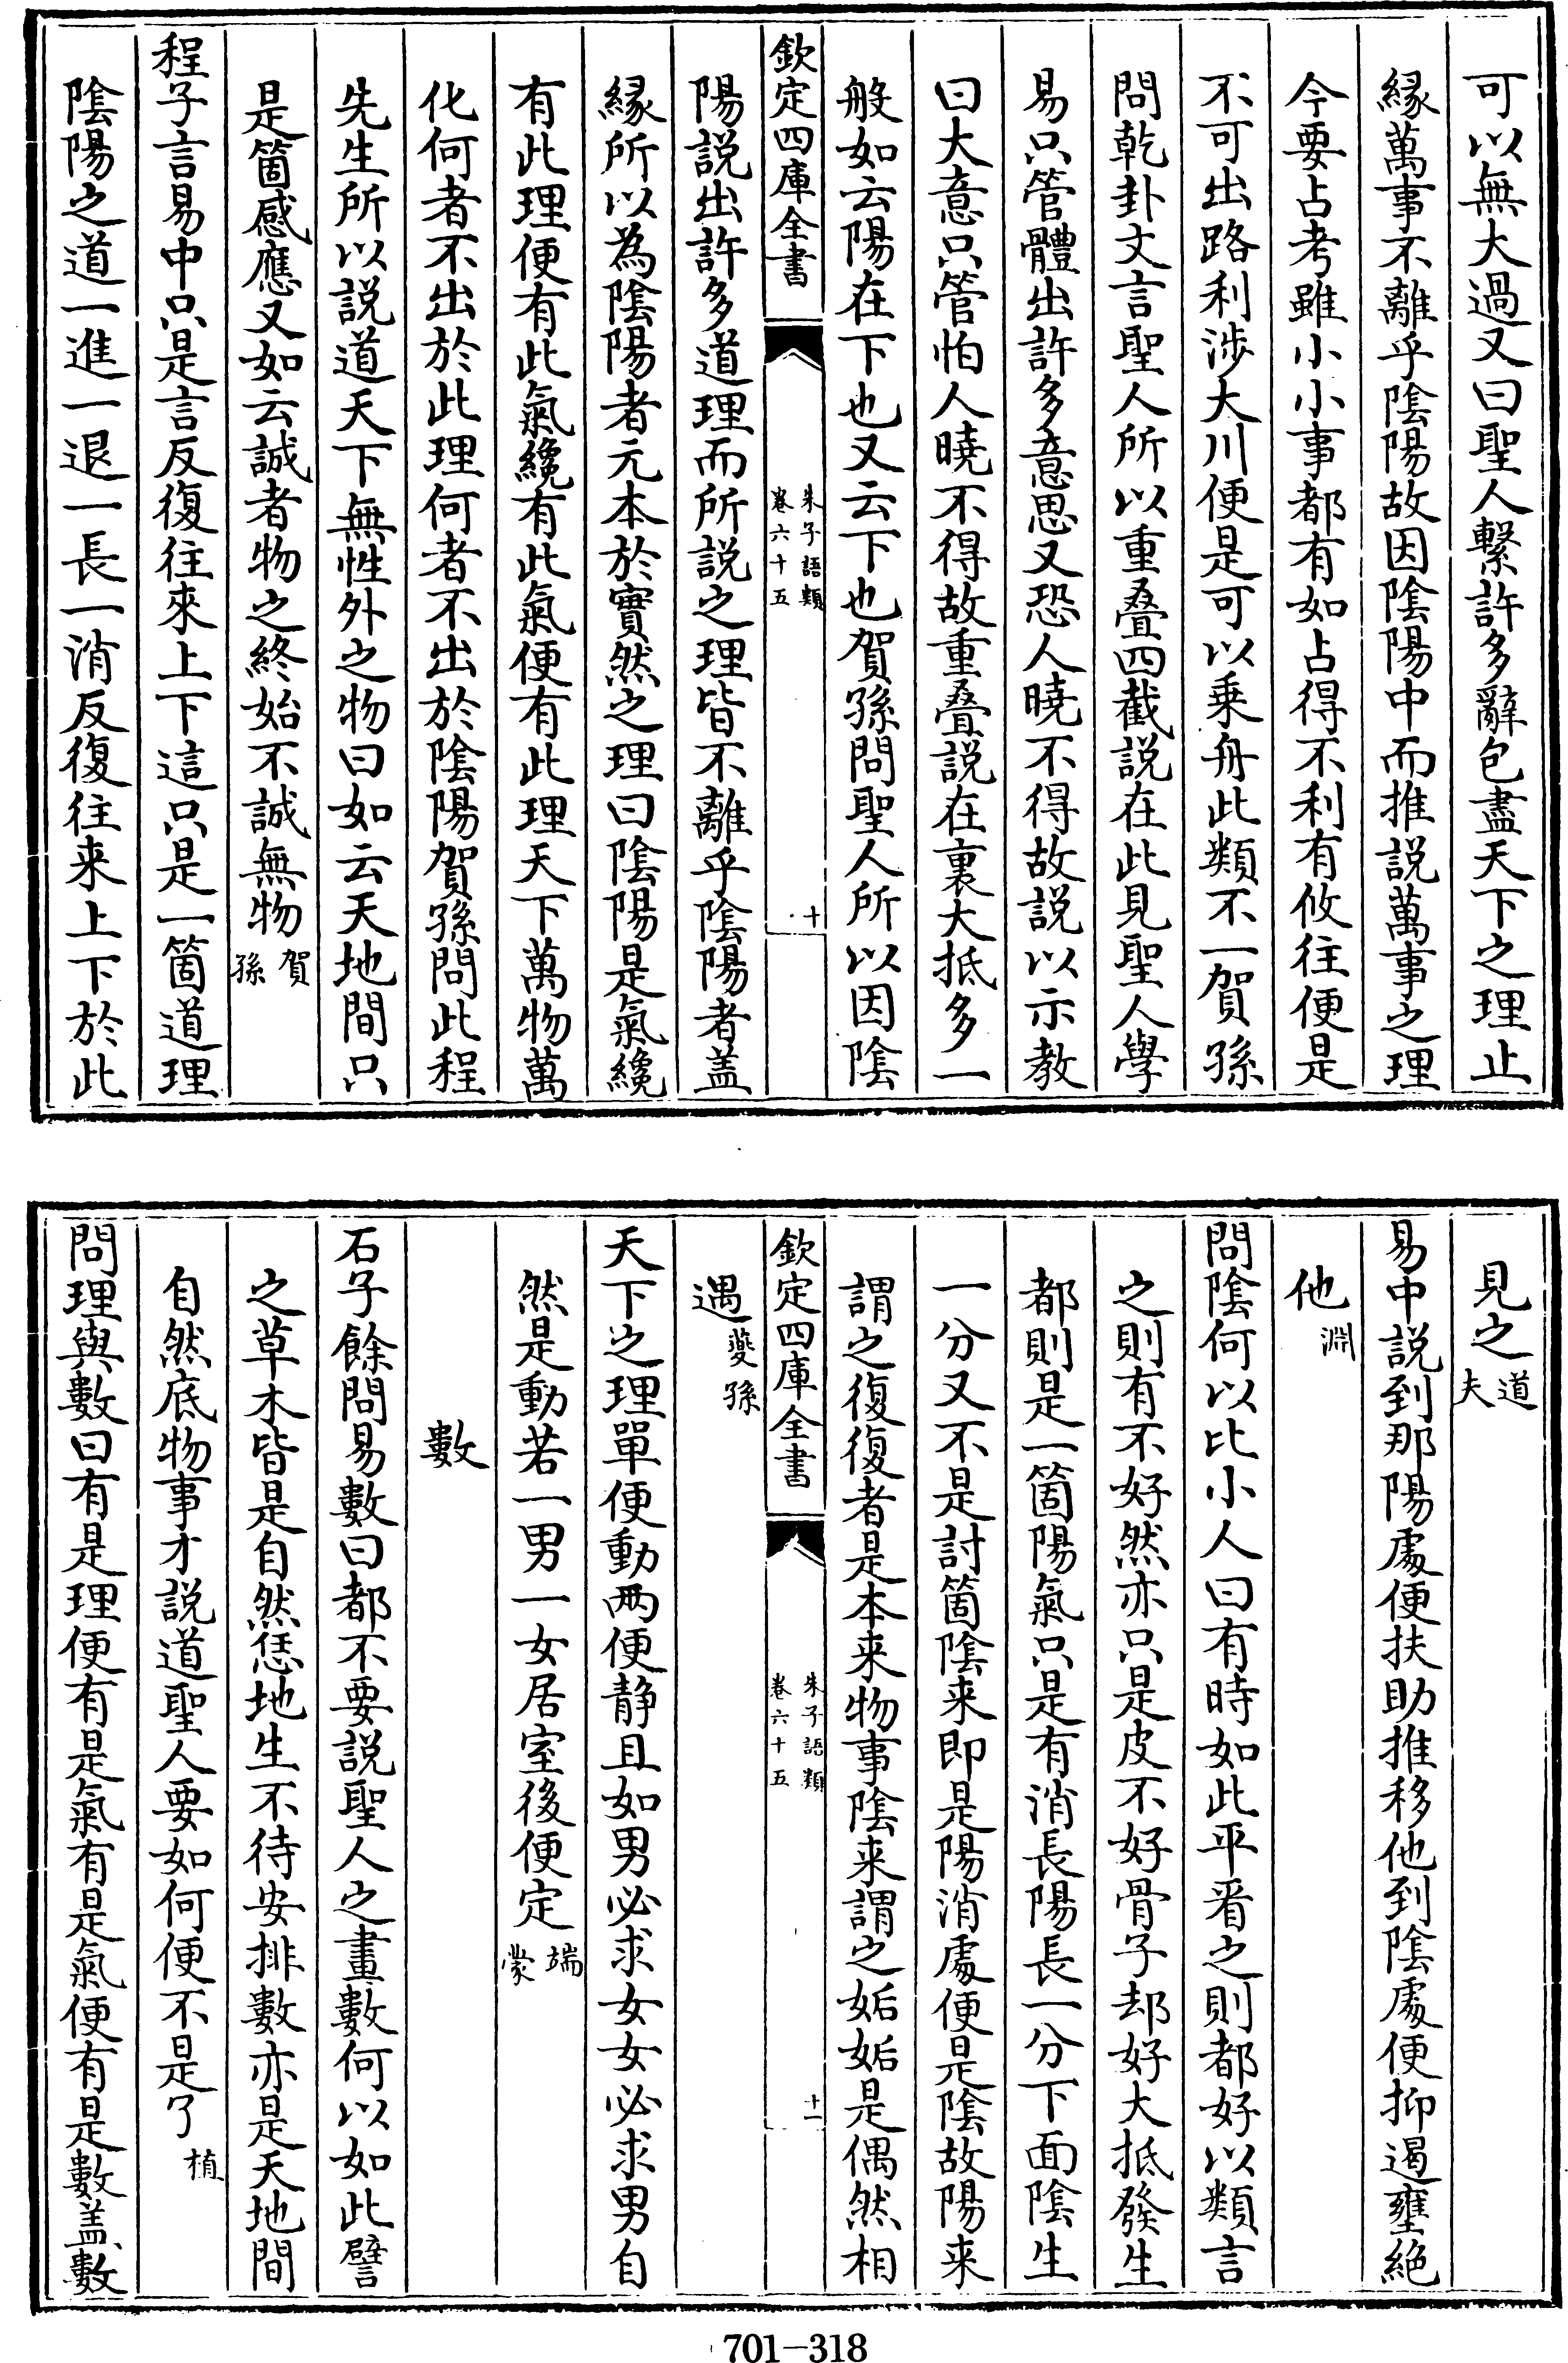 可以無大過又曰聖人繫許多辭包盡天下之理止
緣萬事不離乎陰陽故因陰陽中而推說萬事之理
今要占考雖小小事都有如占得不利有攸往便是
不可出路利涉大川便是可以乗舟此類不一賀孫
問乾卦文言聖人所以重叠四截說在此見聖人學
易只管體出許多意思又恐人曉不得故說以示教
曰大意只管怕人曉不得故重叠說在裏大抵多一
般如云陽在下也又云下也賀孫問聖人所以因陰
欽定四庫全書
朱子語類
卷六十五
十
陽說出許多道理而所說之理皆不離乎陰陽者盖
緣所以為陰陽者元本於實然之理曰陰陽是氣纔
有此理便有此氣纔有此氣便有此理天下萬物萬
化何者不出於此理何者不出於陰陽賀孫問此程
先生所以說道天下無性外之物曰如云天地間只
是箇感應又如云誠者物之終始不誠無物賀孫
程子言易中只是言反復往來上下這只是一箇道理
陰陽之道一進一退一長一消反復往来上下於此
見之道夫
易中說到那陽處便扶助推移他到陰處便抑遏壅絕
他淵
問陰何以比小人曰有時如此平看之則都好以類言
之則有不好然亦只是皮不好骨子却好大抵發生
都則是一箇陽氣只是有消長陽長一分下面陰生
一分又不是討箇陰来即是陽消處便是陰故陽来
謂之復復者是本来物事陰来謂之姤姤是偶然相
欽定四庫全書
朱子語類
卷六十五
十一
遇夔孫
天下之理單便動兩便静且如男必求女女必求男自
然是動若一男一女居室後便定端蒙
數
石子餘問易數曰都不要說聖人之畫數何以如此譬
之草木皆是自然恁地生不待安排數亦是天地間
自然底物事才說道聖人要如何便不是了植
問理與數曰有是理便有是氣有是氣便有是數盖數
701-318